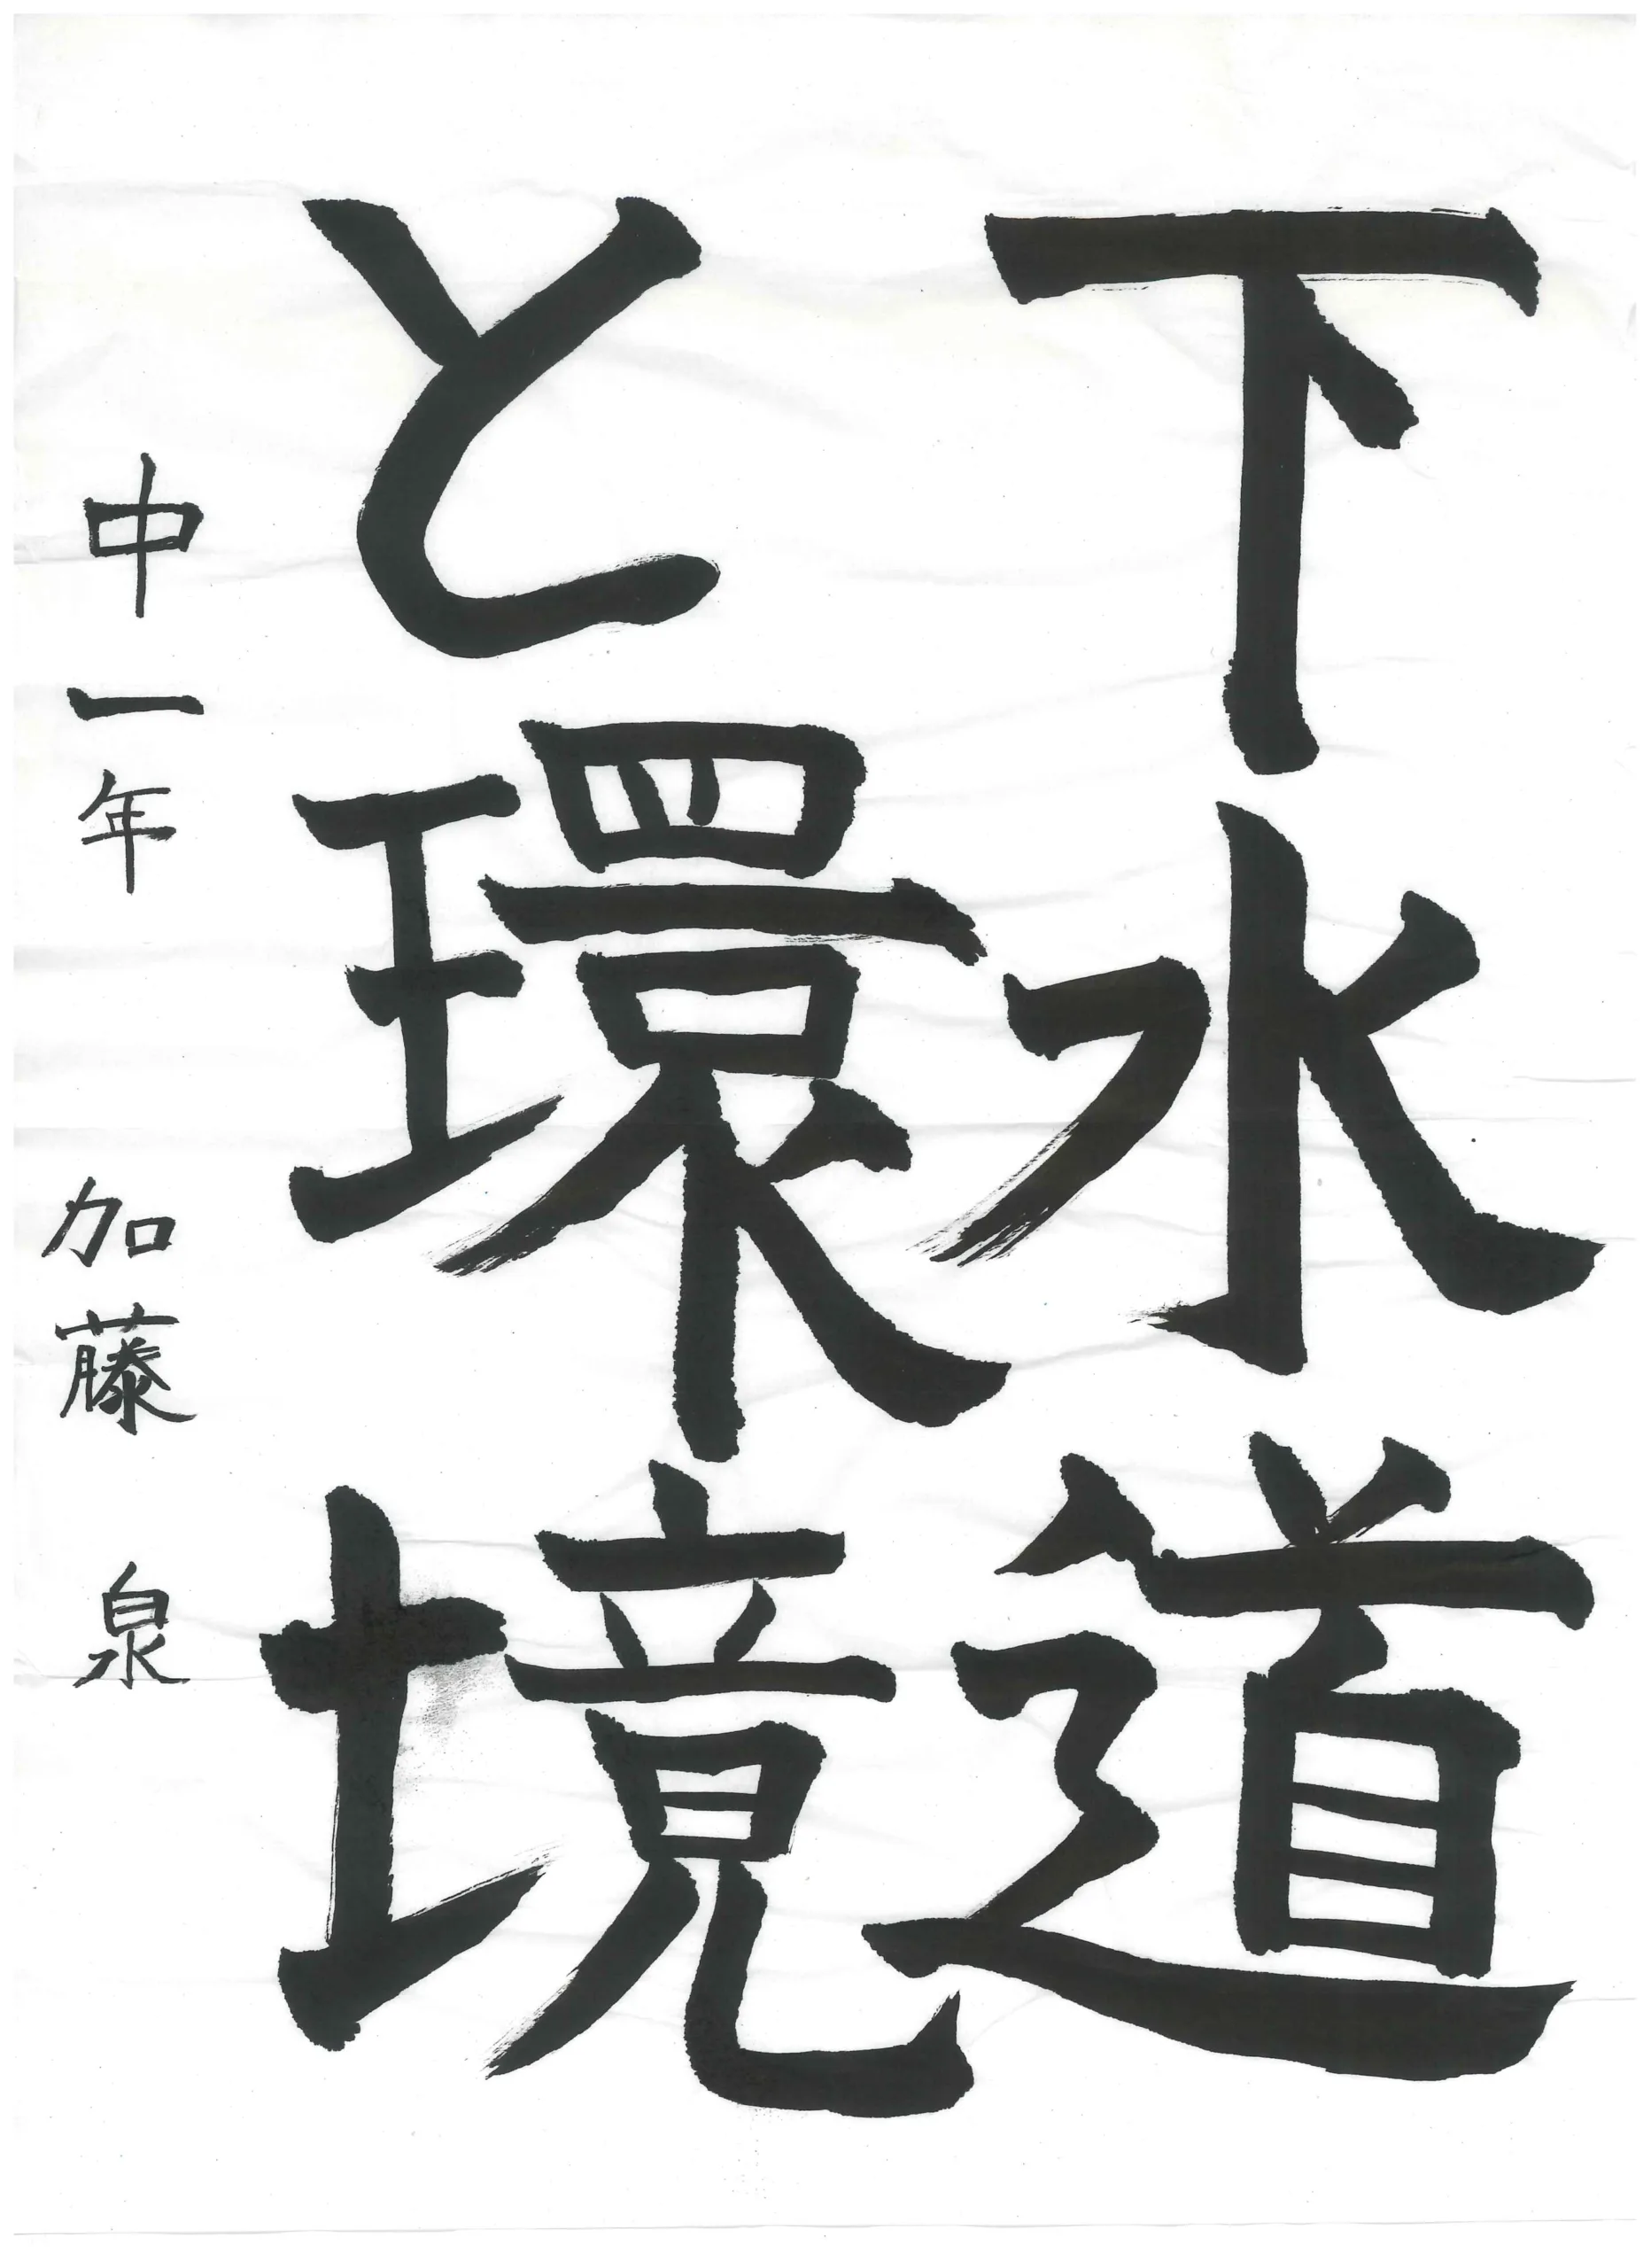 下水道
と環境
中一年 加藤 泉